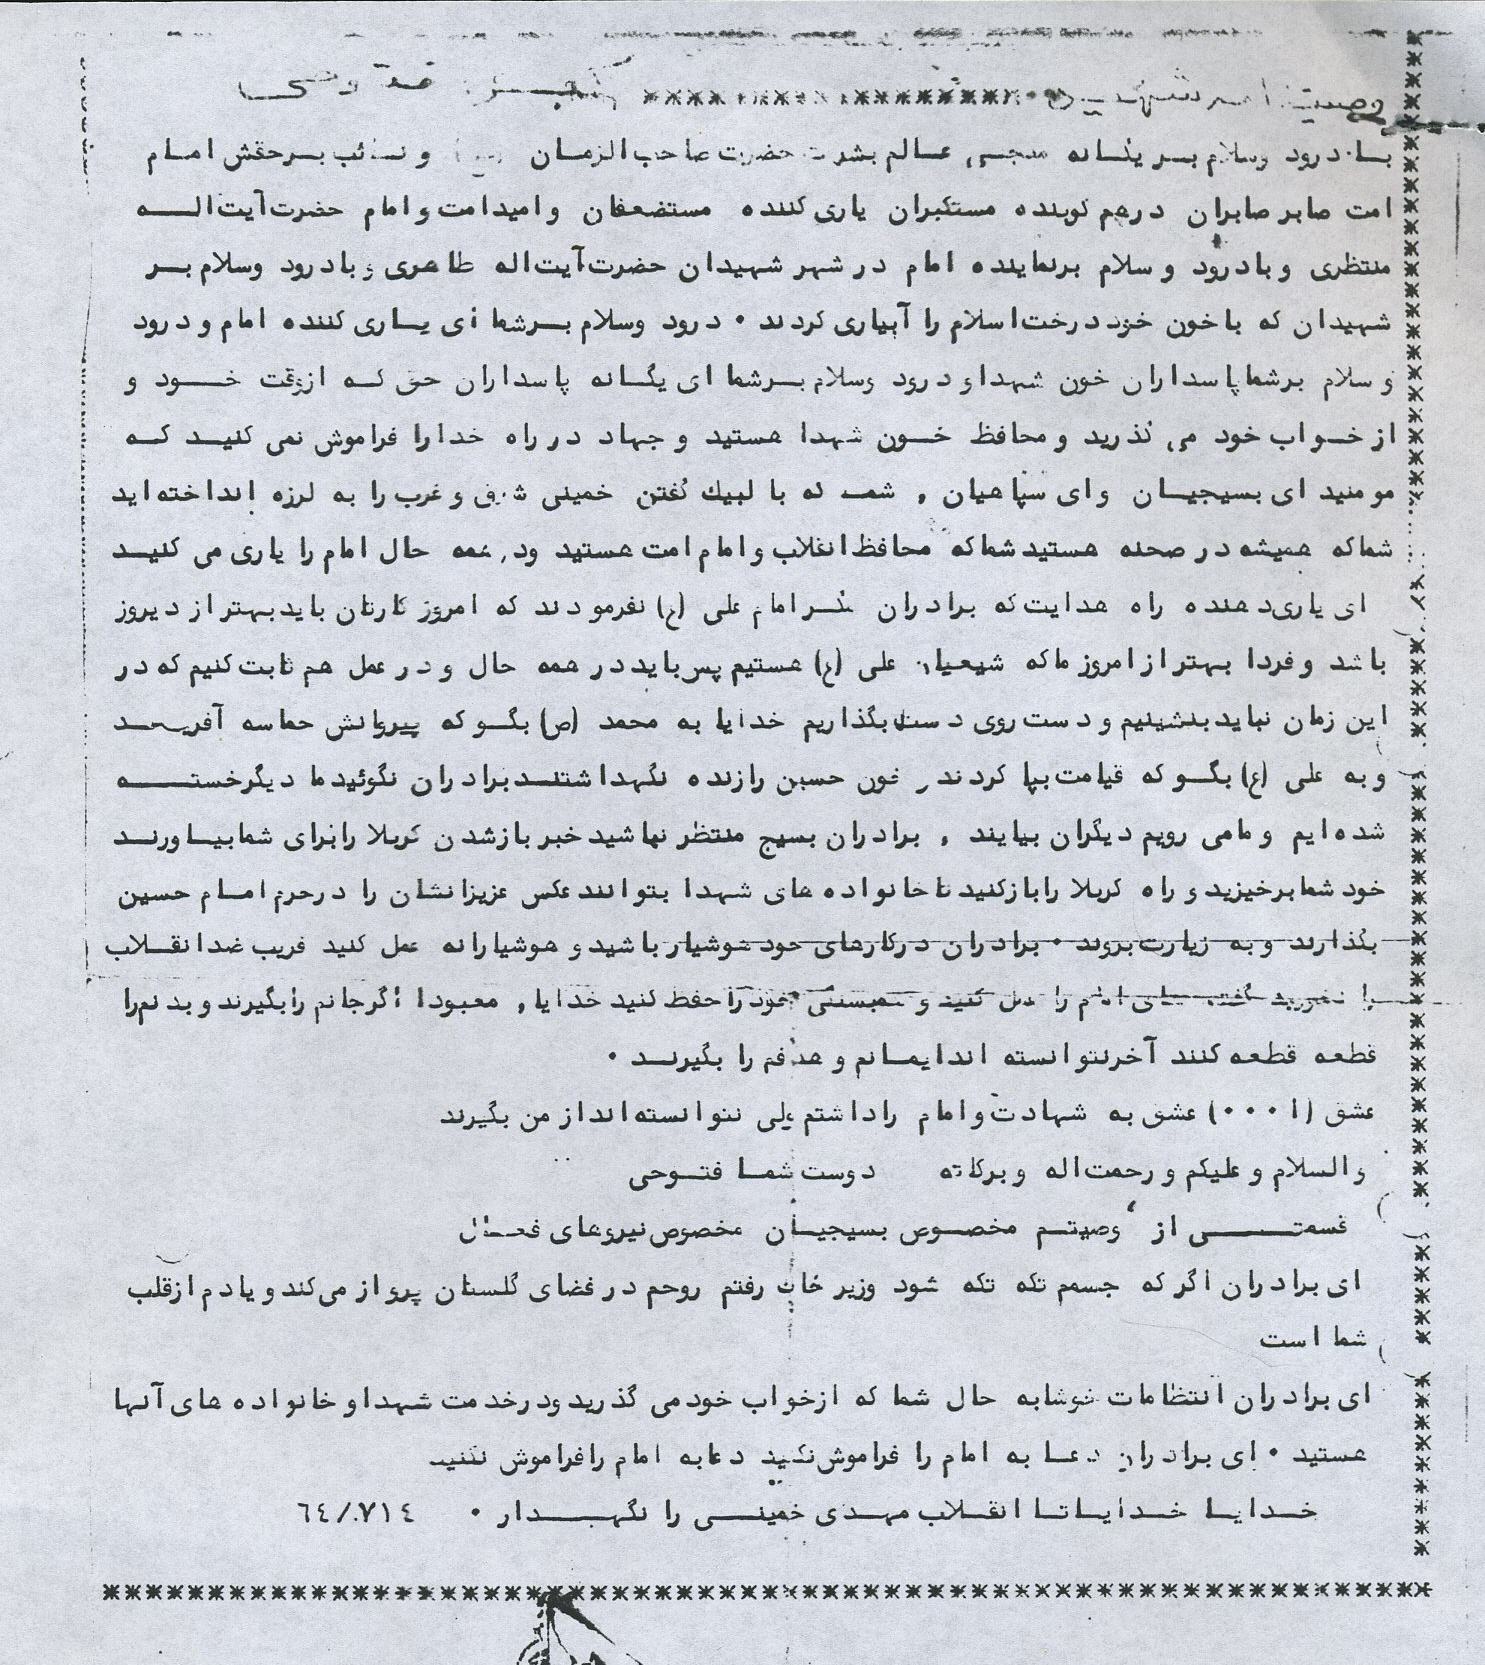 وصیتنامه شهید
با درود وسلام بر یگانه منجی عالم بشریت حضرت صاحب الزمان و نائب برحقش امام
امت صابر صابران درهم کوبنده مستکبران یاری کننده مستضعفان و امید امت و امام حضرت آیت اله
منتظری و با درود و سلام برنماینده امام در شهر شهیدان حضرت آیت اله طاهری و با درود وسلام بر
شهیدان که با خون خود درخت اسلام را آبیاری کردند ۰ درود وسلام برشما ای یاری کننده امام و درود
و سلام برشما پاسداران خون شهدا و درود وسلام برشما ای یگانه پاسداران حق که از وقت خود و
از خواب خود می گذرید و محافظ خون شهدا هستید و جهاد در راه خدا را فراموش نمی کنید که
مومنید ای بسیجیان و ای سپاهیان , شما که با لبیك گفتن خمینی شرق و غرب را به لرزه انداخته اید
شما که همیشه در صحنه هستید شما که محافظ انقلاب و امام امت هستید ودر همه حال امام را یاری می کنید
ای یاری دهنده راه هدایت که برادران مگر امام علی (ع) نفرمودند که امروز کارتان باید بهتر از دیروز
باشد و فردا بهتر از امروز ما که شیعیان علی (ع) هستیم پس باید در همه حال و در عمل هم ثابت کنیم که در
این زمان نباید بنشینیم و دست روی دست بگذاریم خدایا به محمد (ص) بگو که پیروانش حماسه آفریدند
و به علی (ع) بگو که قیامت بپا کردند , خون حسین را زنده نگهداشتند برادران نگوئید ما دیگر خسته
شده ایم و ما می رویم دیگران بیایند , برادران بسیج منتظر نباشید خبر باز شدن کربلا را برای شما بیاورند
خود شما برخیزید و راه کربلا را باز کنید تا خانواده های شهدا بتوانند عکس عزیزانشان را در حرم امام حسین
بگذارند و به زیارت بروند ۰ برادران در کارهای خود هوشیار باشید و هوشیارانه عمل کنید فریب ضد انقلاب
را نخورید گفته های امام را عمل کنید و همبستگی خود را حفظ کنید خدایا , معبودا اگر جانم را بگیرند و بدنم را
قطعه قطعه کنند آخر نتوانسته اند ایمانم و هدفم را بگیرند ۰
عشق (ا ۰۰۰) عشق به شهادت و امام را داشتم ولی نتوانسته اند از من بگیرند
والسلام و علیکم و رحمت اله و برکاته دوست شما فتوحی
قسمتی از وصیتم مخصوص بسیجیان مخصوص نیروهای فعال
ای برادران اگر که جسمم تکه تکه شود وزیر خاک رفتم روحم در فضای گلستان پرواز می کند و یادم از قلب
شما است
ای برادران انتظامات خوشا به حال شما که از خواب خود می گذرید ودر خدمت شهدا و خانواده های آنها
هستید ۰ ای برادران دعا به امام را فراموش نکنید دعا به امام را فراموش نکنید
خدایا خدایا تا انقلاب مهدی خمینی را نگهدار ۰ ٦٤/٠٧١٤